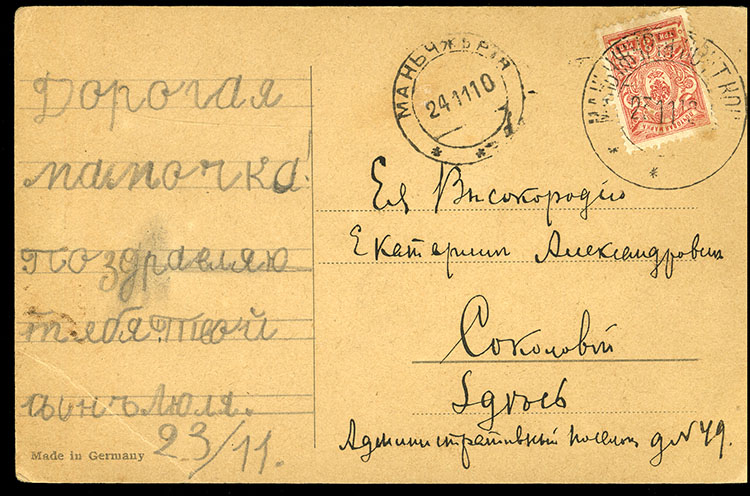 Дорогая
мамочка!
Поздравляю
тебя. Твой
сынъ Люля.
23/11.
Made in Germany
МАНЬЧЖУРІЯ
24 11 10
Ея Высокородію
Екатерины Александровны
Соколовой
Здѣсь
Административный поселокъ д № 49.